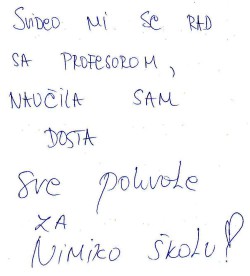 SVIDEO MI SE RAD
SA PROFESOROM,
NAUČILA SAM
DOSTA
Sve pohvale
ZA
Nimiko školu!